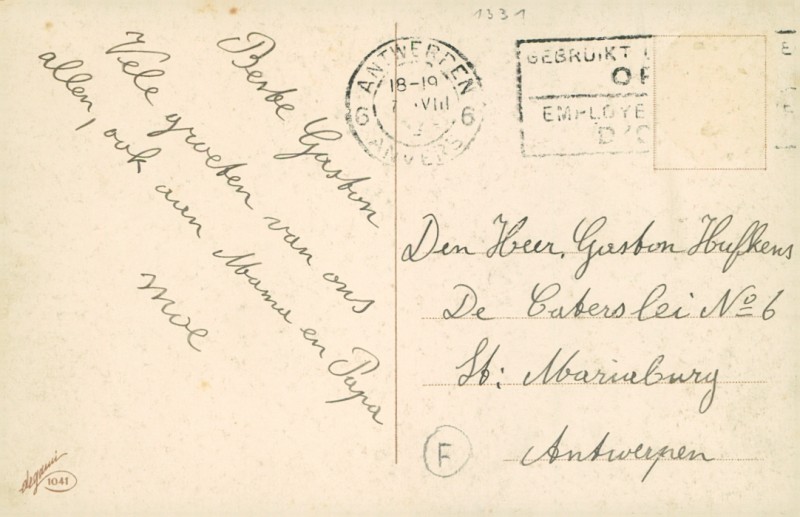 1331
Beste Gaston
Vele groeten van ons
allen, ook aan Mama en Papa
Moe
ANTWERPEN
18-19
VIII
6 6
ANVERS
GEBRUIKT
EMPLOYE
D'
E
Den Heer, Gaston Hufkens
De Caterslei No 6
St: Mariaburg
Antwerpen
F
degami
1041